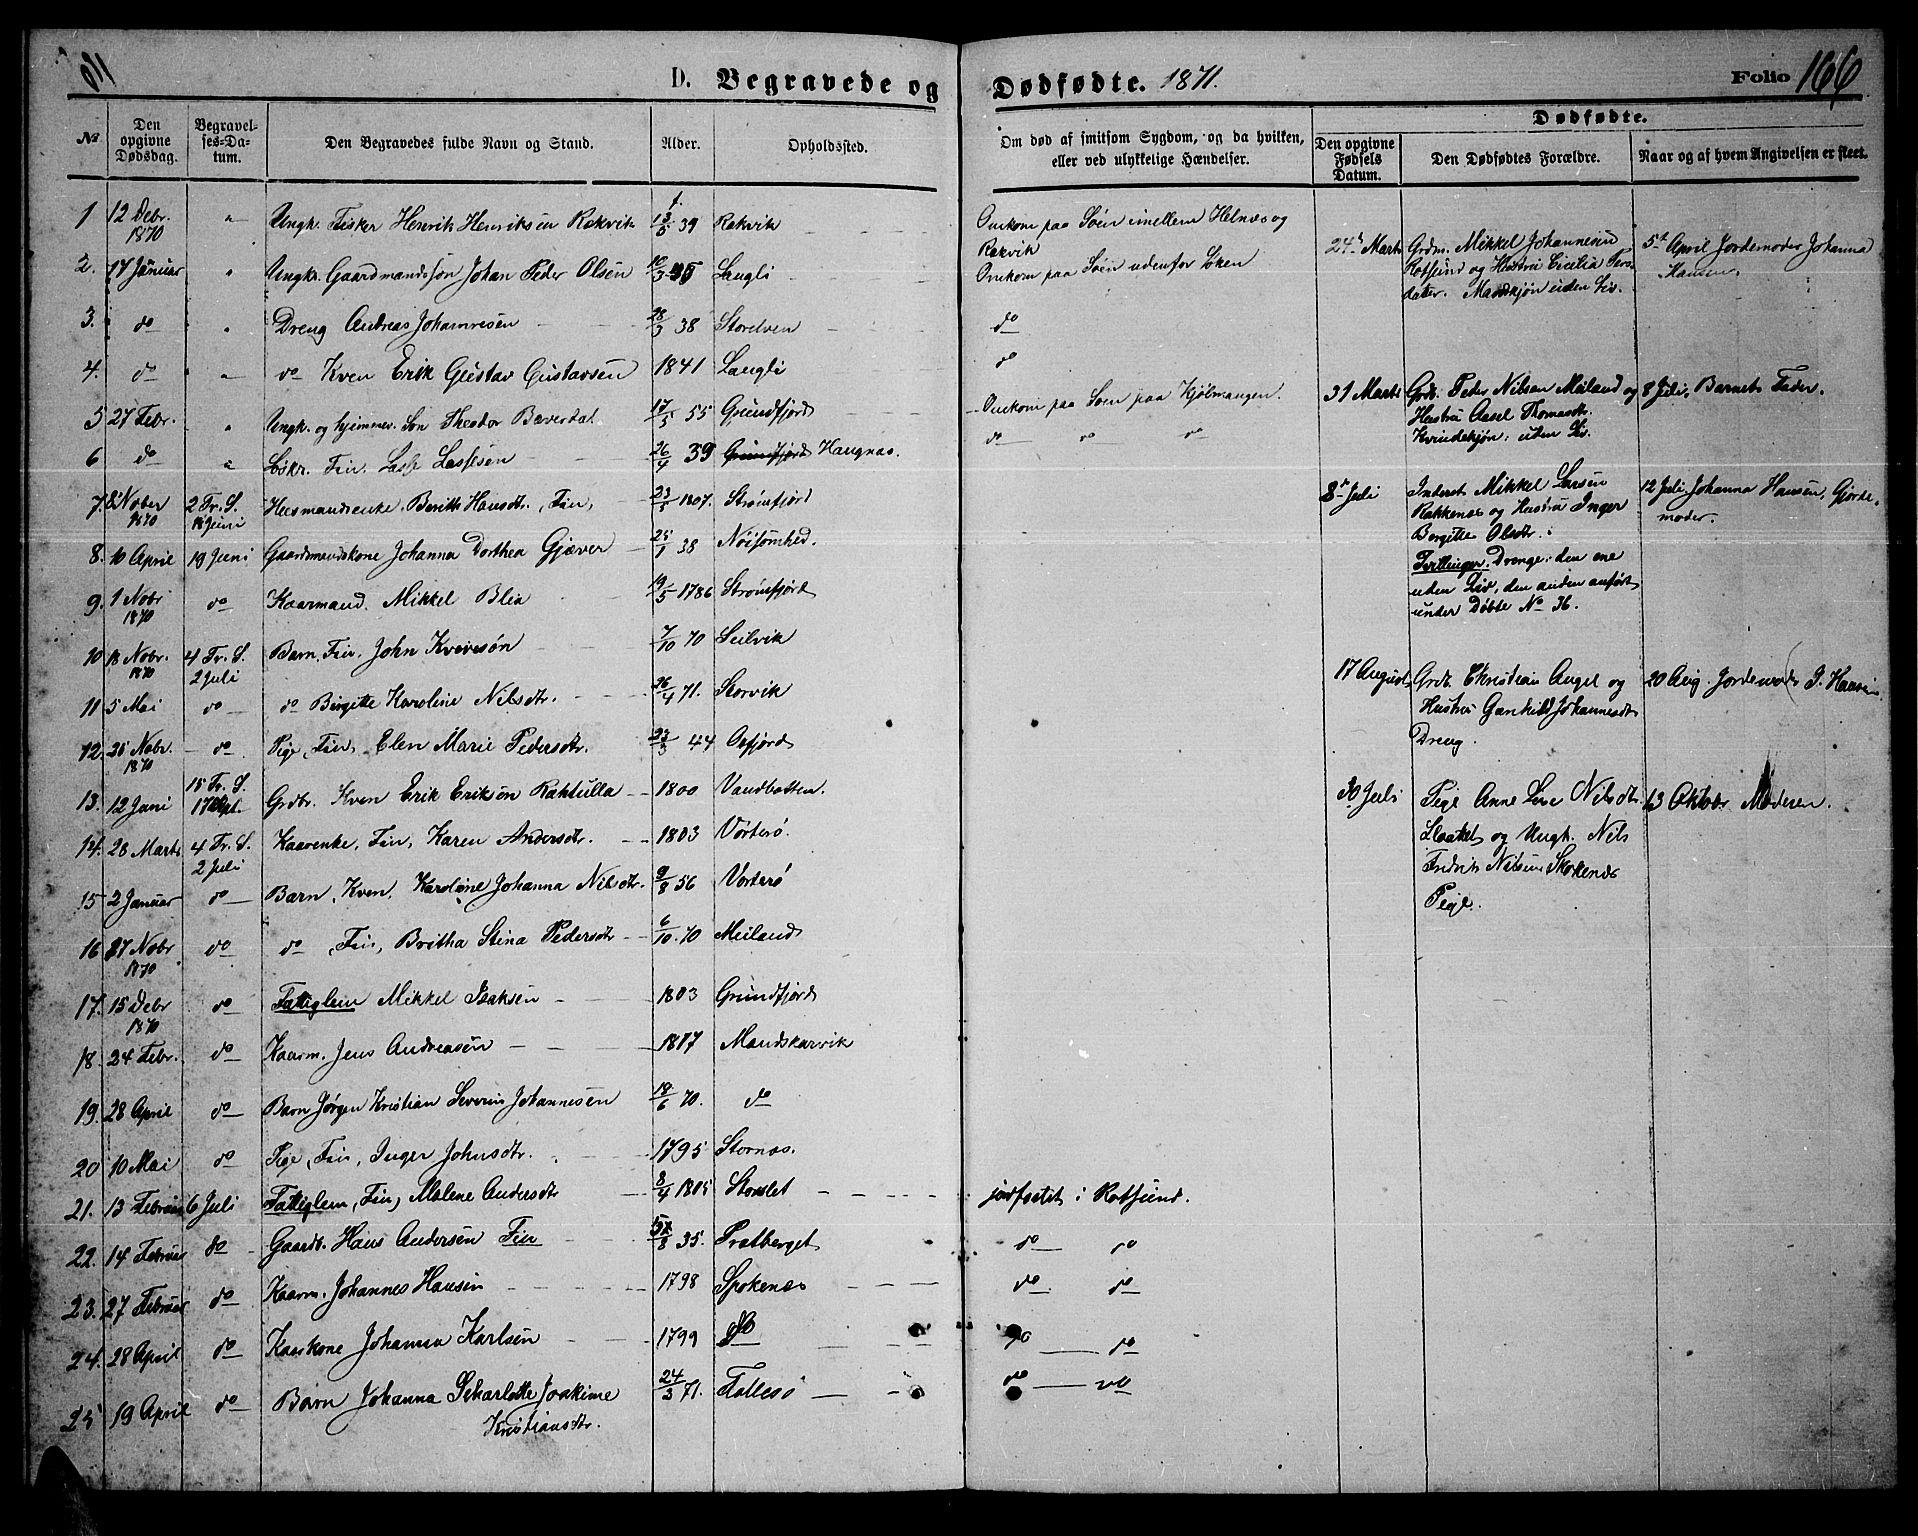 D. Begravede og Dødfødte. 1871.
Folio 166
No
Den opgivne Dødsdag.
Begravelses-Datum.
Den Begravedes fulde Navn og Stand.
Alder.
Opholdssted.
Om død af smitsom Sygdom, og da hvilken, eller ved ulykkelige Hændelser.
Dødfødte.
Den opgivne Fødsels Datum.
Den Dødfødtes Forældre.
Naar og af hvem Angivelsen er skeet.
1 12 Debr. 1870 " Ungk. Fisker Henrik Henriksen Rakvik 39 Rakvik
2. 17 Januar " Ungk. Gaardmandssøn Johan Peder Olsen 35 Langli
3. do " Dreng Andreas Johannesen 28/3 38 Storelven
4. do " do Kven Erik Gustav Gustavsen 1841 Langli
5 27 Febr. " Ungk. og hjemmev. Søn Theodor Bæverdal 55 Grundfjord
6 do " Løskr. Fin. Lasse Lassesen 26/4 39 Grundfjord Haugnæs.
7. 8 Nober 1870 2 Tr. S. 18 Juni Huusmandsenke. Berith Hansdtr., Fin, 1807. Strømfjord
8. 10 April 19 Juni Gaardmandskone Johanna Dorthea Gjæver 25/1 38 Nøisomhed.
9. 1 Nobr. 1870 do Kaarmand. Mikkel Blix 19/5 1786 Strømfjord
10 18 Nobr. 1870 4 Tr. S. 2 Juli Barn, Fin, John Kvivesøn 7/10 70 Seilvik
11 5 Mai do do Birgitte Karoline Nilsdtr. 26/4 71. Storvik
12. 25 Nobr. 1870 do Pige, Fin, Elen Marie Pedersdtr. 23/3 44 Oxfjord
13. 12 Juni 15 Tr. S. 17 Sept. Grdbr. Kven Erik Eriksøn Rahtulla 1800 Vandbotten.
14. 28 Marts 4 Tr. S. 2 Juli Kaarenke, Fin, Karen Andersdtr. 1803 Vorterø.
15 2 Januar do Barn, Kven, Karoline Johanna Nilsdtr. 9/8 56 Vorterø
16 27 Nobr 1870 do do, Fin, Britha Stina Pedersdtr 6/10. 70 Meiland
17. 15 Debr 1870 do Fattiglem Mikkel Isaksen 1803 Grundfjord
18. 24 Febr. do Kaarm. Jens Andreasen 1817 Mandskarvik
19. 28 April do Barn Jørgen Kristian Severin Johannesen 19/6 70. do
20 10 Mai do Pige, Fin, Inger Johnsdtr. 1795 Stornæs.
21. 13 Februar 6 Juli Fattiglem, Fin, Malene Andersdtr 8/4 1805 Storslet
22. 14 Februar do Gaardb. Hans Andersen Fin 35. Bratberget
23. 27 Februar do Kaarm. Johannes Hansen 1798 Spokenæs
24. 28 April do Kaarkone Johanna Karlsen 1799 do
25 19 April do Barn Johanna Scharlotte Joakime 24/3 71. Follesø
Kristiansdtr.
Omkom paa Søen imellem Helnæs og
Rakvik
Omkom paa Søen udenfor Løken
do
do
Omkom paa Søen paa Kjølmangen.
do do do
jordfæstet i Rotsund.
do do
do do
do do
do do
24. Marts Grdm. Mikkel Johannesen
Rotsund og Hustru Cicilia Pers-
dater. Mandkjøn uden Liv.
5te April Jordemoder Johanna
Hansen
31 Marts Grdb. Peder Nilsen Meiland og
Hustru Aasel Thomasdtr.
Kvindekjøn: uden Liv.
8 Juli, Barnets Fader.
8de Juli Inderst Mikkel Larsen
Rakkenæs og Hustru Inger
Bergitte Olsdtr.:
Tvillinger. Drenge: den ene
uden Liv, den anden anført
under Døbte No 36.
12 Juli Johanna Hansen, Gjorde-
moder.
17 August Grdb. Christian Angel og
Hustru Gunhild Johannesdt
Dreng.
20 Aug. Jordemoder J. Hansen
30 Juli Pige Anne Lise Nilsdtr.
og Ungk. Nils
Fredrik Nilsen Skokenæs
Pige.
13 Oktobr Moderen.